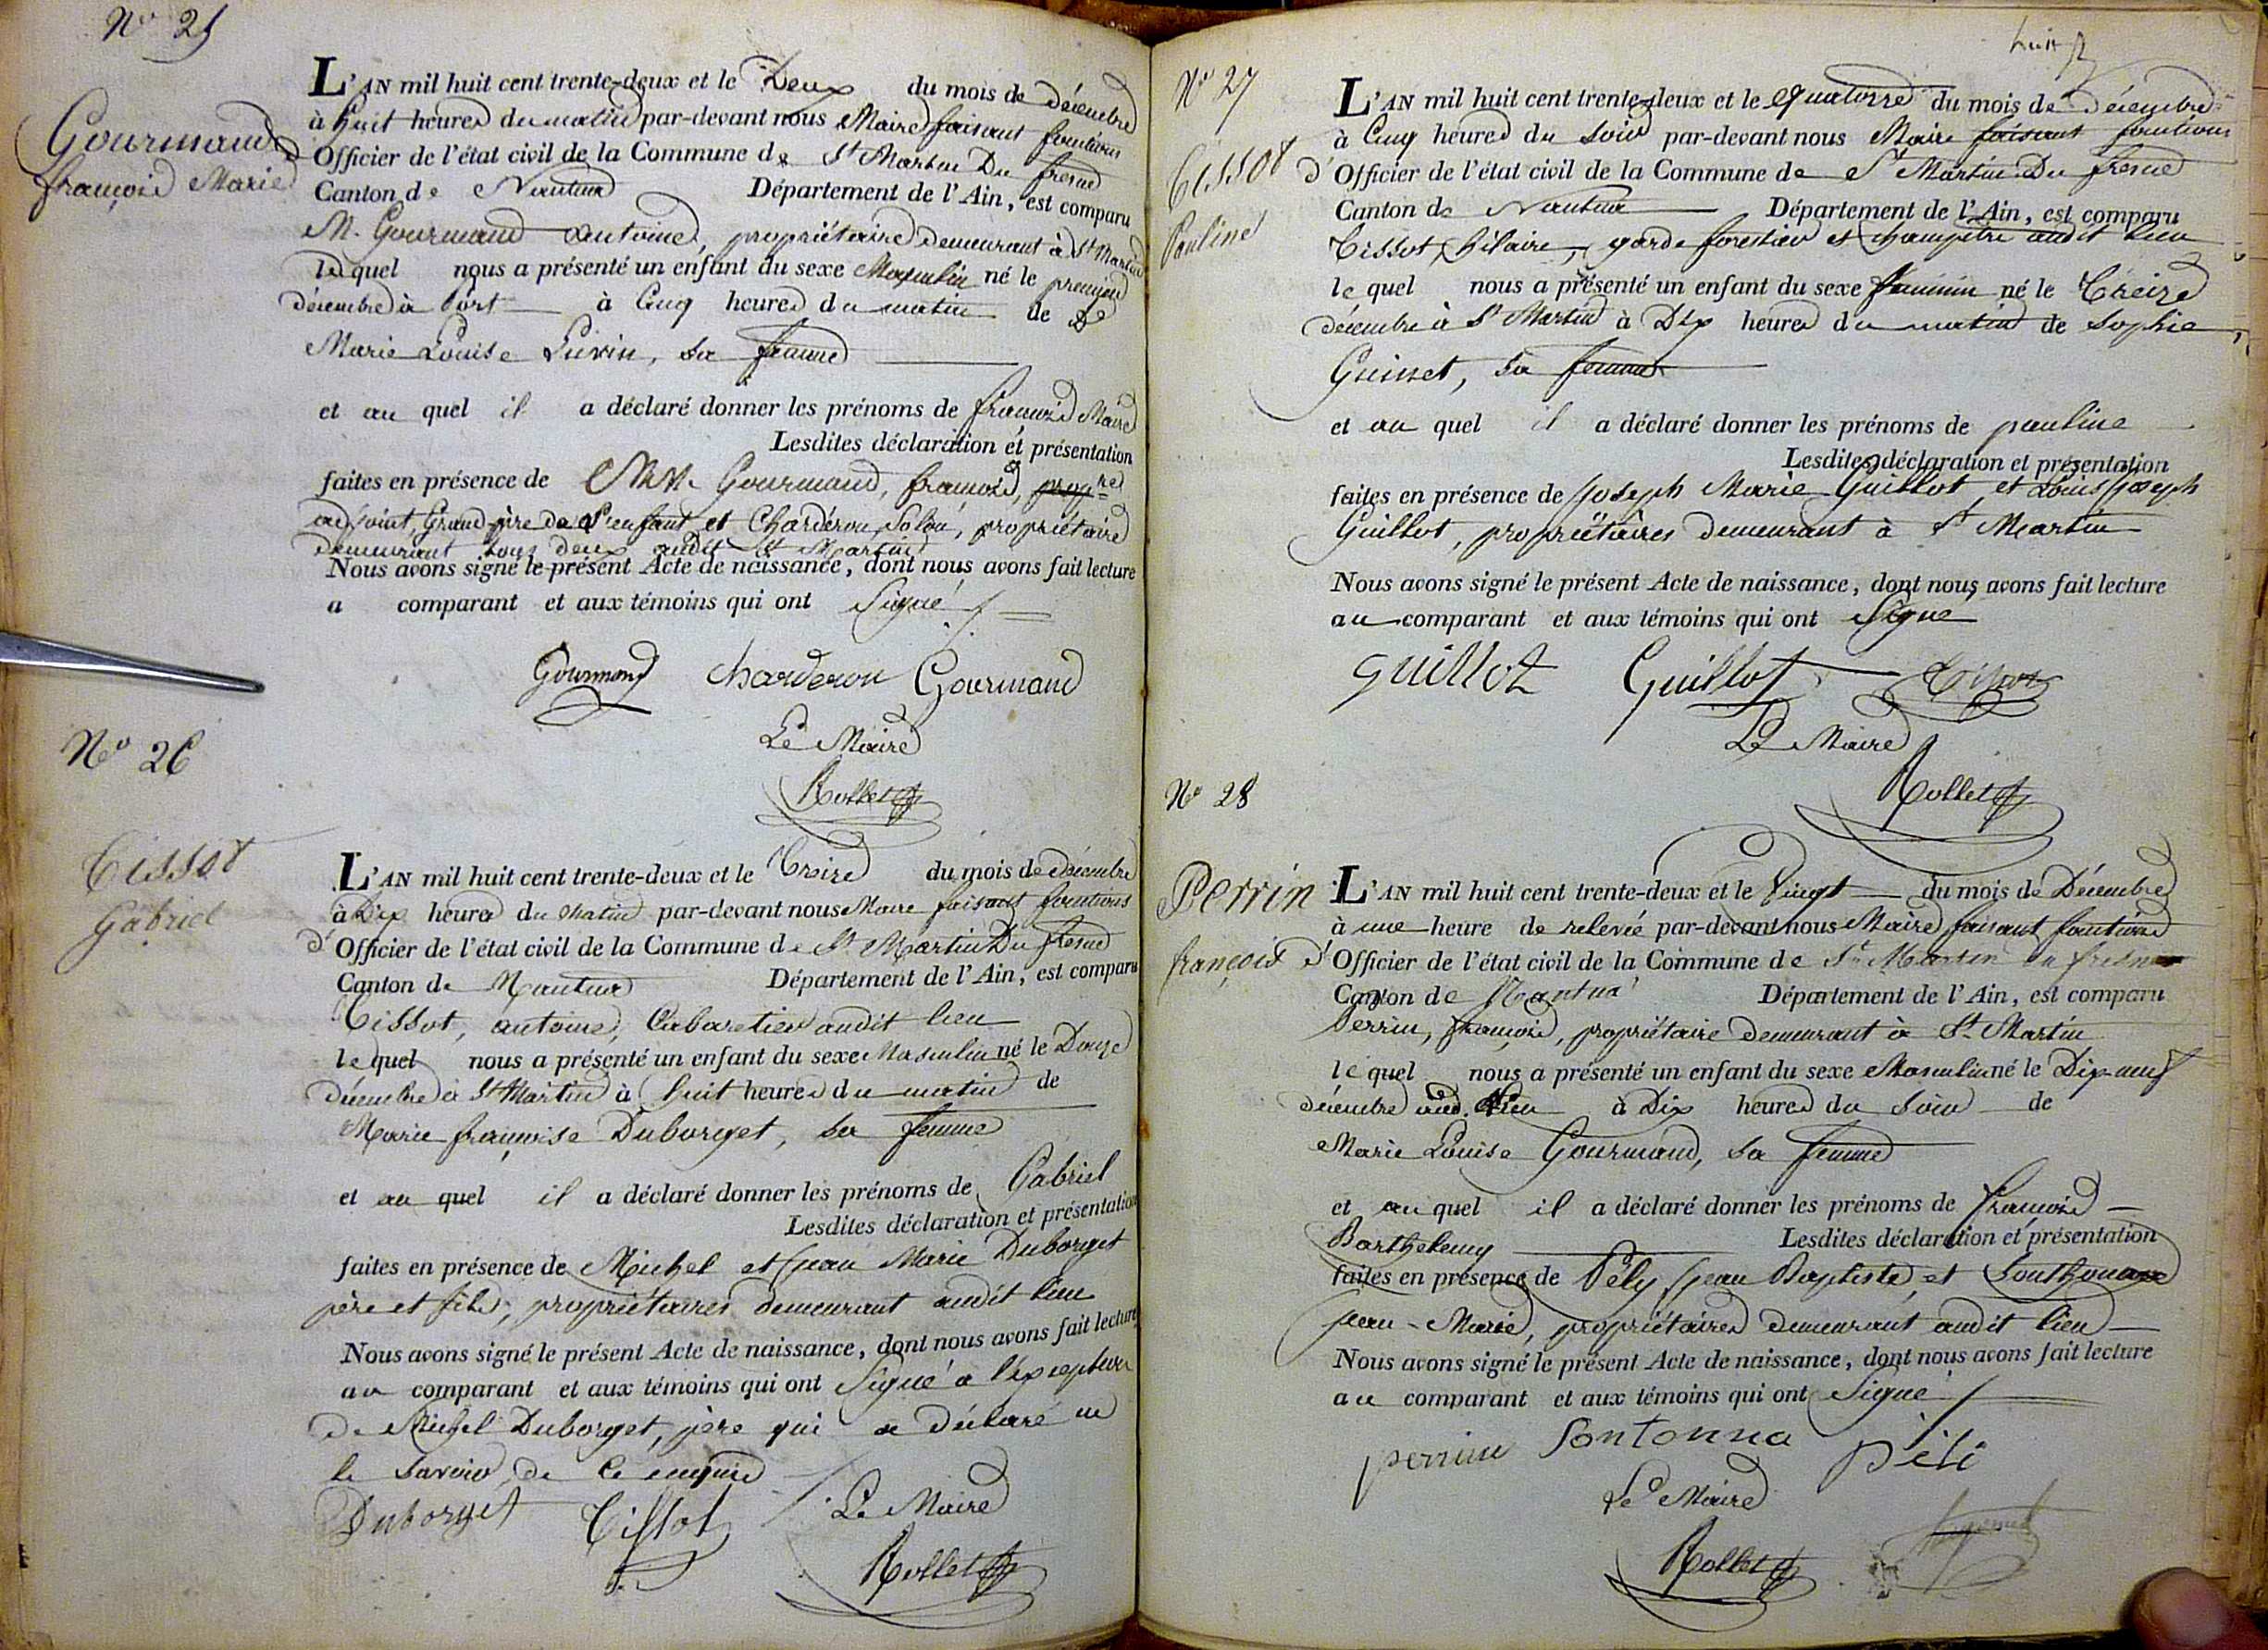 N° 25
Gourmand
françois Marie
L'AN mil huit cent trente-deux et le Deux du mois de décembre
à huit heures du matin par-devant nous Maire faisant fonctions
Officier de l'état civil de la Commune de St Martin Du fresne
Canton de Nantua Département de l'Ain, est comparu
M. Gourmand antoine, propriétaire demeurant à St Martin
le quel nous a présenté un enfant du sexe Masculin né le premier
décembre à Port à Cinq heures du matin de De
Marie Louise Livrin, sa femme
et au quel il a déclaré donner les prénoms de françois Marie
Lesdites déclaration et présentation
faites en présence de MM. Gourmand, françois, propre
adjoint, Grand-père de l'enfant et Charderon, Solon, propriétaire
demeurant tous deux audit St Martin
Nous avons signé le présent Acte de naissance, dont nous avons fait lecture
a comparant et aux témoins qui ont Signé
Gourmand charderon Gourmand
Le Maire
Rollet
N° 26
Tissot
Gabriel
L'AN mil huit cent trente-deux et le Treize du mois de décembre
à Dix heures du Matin par-devant nous Maire faisant fonctions
d' Officier de l'état civil de la Commune de St Martin Du fresne
Canton de Nantua Département de l'Ain, est comparu
Tissot, antoine, Cabaretier audit lieu
le quel nous a présenté un enfant du sexe Masculin né le Douze
décembre à St Martin à huit heures du matin de
Marie françoise Duborget, sa femme
et au quel il a déclaré donner les prénoms de Gabriel
Lesdites déclaration et présentation
faites en présence de Michel et jean Marie Duborget
père et fils, propriétaires demeurant audit lieu
Nous avons signé le présent Acte de naissance, dont nous avons fait lecture
au comparant et aux témoins qui ont Signé à l'exception
de Michel Duborget, père qui a déclaré ne
le savoir de ce enquis
Duborget Tissot Le Maire
Rollet
huit
N° 27
Tissot
Pauline
L'AN mil huit cent trente-deux et le Quatorze du mois de décembre
à Cinq heures du soir par-devant nous Maire faisant fonctions
d' Officier de l'état civil de la Commune de St Martin Du fresne
Canton de Nantua Département de l'Ain, est comparu
Tissot, hilaire, garde forestier et champêtre audit lieu
le quel nous a présenté un enfant du sexe féminin né le Treize
décembre à St Martin à Dix heures du matin de Sophie
Guinet, sa femme
et au quel il a déclaré donner les prénoms de pauline
Lesdites déclaration et présentation
faites en présence de Joseph Marie Guillot et Louis Joseph
Guillot, propriétaires demeurant à St Martin
Nous avons signé le présent Acte de naissance, dont nous avons fait lecture
au comparant et aux témoins qui ont Signé
Guillot Guillot Tissot
Le Maire
Rollet
N° 28
Perrin
françois
L'AN mil huit cent trente-deux et le Vingt du mois de Décembre
à une heure de relevée par-devant nous Maire faisant fonctions
d' Officier de l'état civil de la Commune de St Martin du fresne
Canton de Nantua Département de l'Ain, est comparu
Perrin, françois, propriétaire demeurant à St Martin
le quel nous a présenté un enfant du sexe Masculin né le Dix-neuf
décembre aud. lieu à Dix heures du Soir de
Marie Louise Gourmand, sa femme
et au quel il a déclaré donner les prénoms de françois
Barthelemy Lesdites déclaration et présentation
faites en présence de Pély jean Baptiste, et Southonnax
jean-Marie, propriétaires demeurant audit lieu
Nous avons signé le présent Acte de naissance, dont nous avons fait lecture
au comparant et aux témoins qui ont Signé
perrin Sontonna péli
Le Maire
Rollet